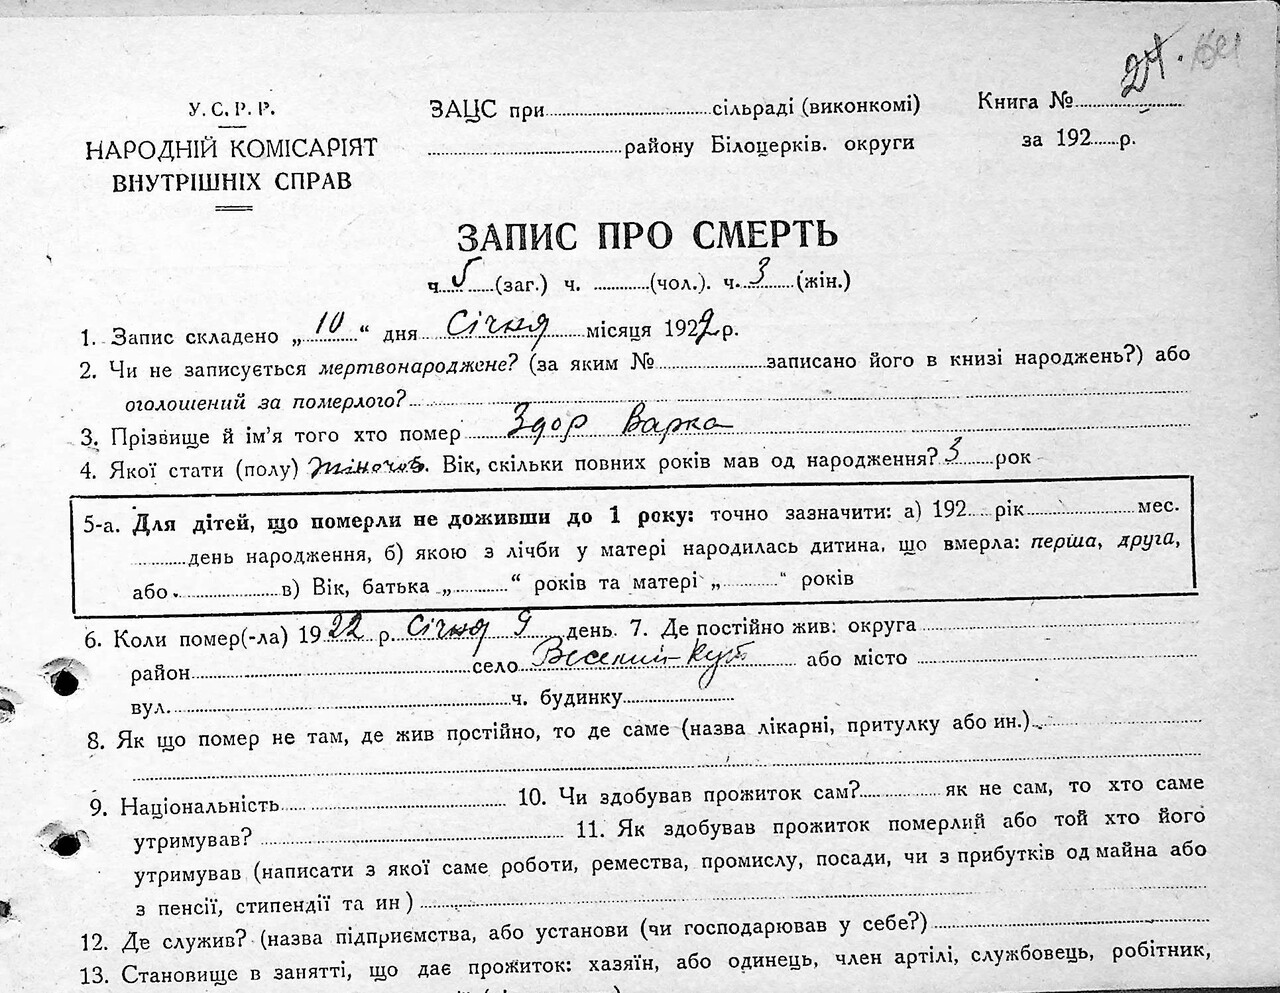 24.
У.С.Р.Р.
НАРОДНІЙ КОМІСАРІЯТ
ВНУТРІШНІХ СПРАВ
ЗАЦС при..........сільраді (виконкомі)
..........району Білоцерків. округи
Книга №..........
за 192......р.
ЗАПИС ПРО СМЕРТЬ
ч. 5 (заг.) ч. ..........(чол.). ч. 3 (жін.)
1. Запис складено „ 10 “ дня Січня місяця 1922 р.
2. Чи не записується мертвонароджене? (за яким №..........записано його в книзі народжень?) або
оголошений за померлого?..........
3. Прізвище й ім'я того хто помер Здор Варка
4. Якої стати (полу) жіноч. Вік, скільки повних років мав од народження? 3 рок
5-а. Для дітей, що померли не доживши до 1 року: точно зазначити: а) 192....рік..........мес.
..........день народження, б) якою з лічби у матері народилась дитина, що вмерла: перша, друга,
або..........в) Вік, батька „..........“ років та матері „..........“ років
6. Коли помер(-ла) 1922 р. Січня 9 день. 7. Де постійно жив: округа..........
район..........село Веселий-Кут або місто..........
вул...........ч. будинку..........
8. Як що помер не там, де жив постійно, то де саме (назва лікарні, притулку або ин.)..........
9. Національність.......... 10. Чи здобував прожиток сам?..........як не сам, то хто саме
утримував?.......... 11. Як здобував прожиток померлий або той хто його
утримував (написати з якої саме роботи, ремества, промислу, посади, чи з прибутків од майна або
з пенсії, стипендії та ин )..........
12. Де служив? (назва підприємства, або установи (чи господарював у себе?)..........
13. Становище в занятті, що дає прожиток: хазяїн, або одинець, член артілі, службовець, робітник,